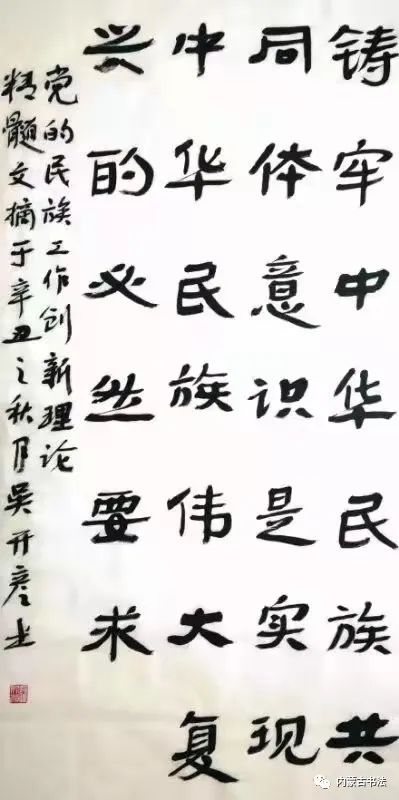 铸牢中华民族共
同体意识是实现
中华民族伟大复
兴的必然要求
党的民族工作创新理论
精髓文摘于辛丑之秋月吴开
内蒙古书法